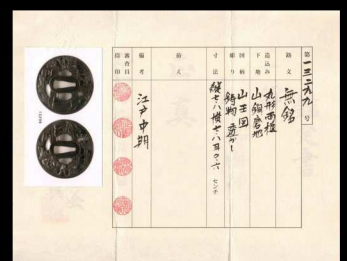 第一三二九九号
銘文 無銘
造込み 丸形両櫃
下地 山銅磨地
図柄 山王図
彫り 鋳物透かし
寸法 縦七八横七八耳〇六 センチ
拵え
備考 江戸中期
審査員
印